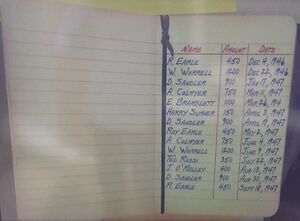 NAME AMOUNT DATE
R. EARLE 450 DEC 4, 1946
W. WORRELL 1200 DEC 22, 1946
D. SANDLER 900 JAN 17, 1947
A. COLNYER 750 MAR 11, 1947
E. BRAMBLETT 1100 MAR 26, 194
HARRY SUMNER 150 APRIL 3, 1947
D. SANDLER 900 APRIL 9, 1947
ROY EARLE 450 MAY 2, 1947
A. COLNYER 750 JUNE 4, 1947
W. WORRELL 1200 JUNE 9, 1947
TED ROSSI 350 JULY 22, 1947
J. O'MALLEY 400 AUG 13, 1947
D. SANDLER 900 AUG 30, 1947
R. EARLE 450 SEPT 18, 1947